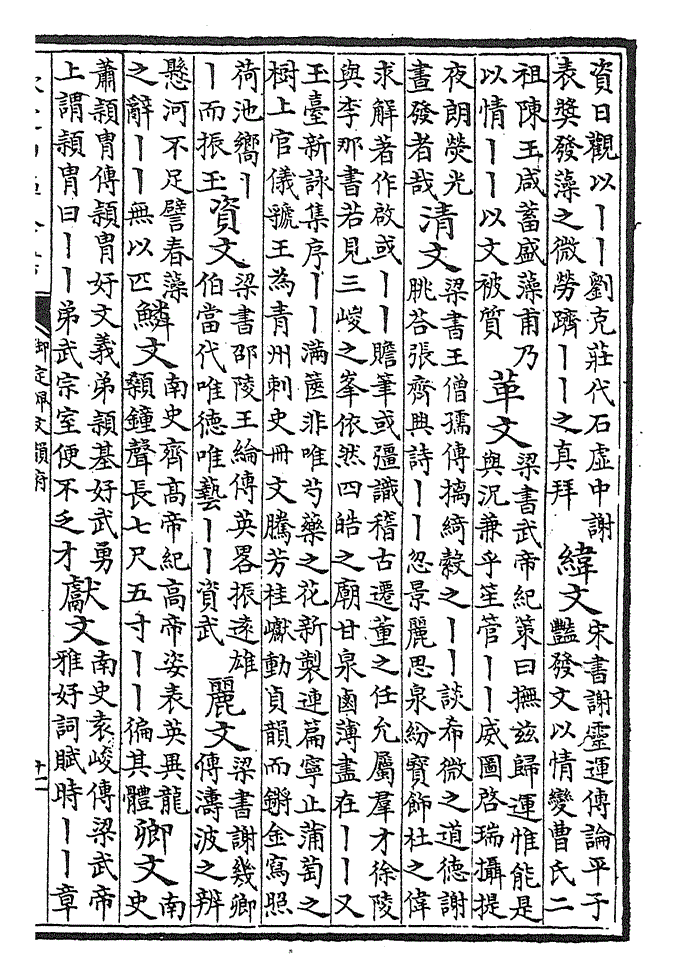 資日觀以丨丨劉克莊代石虛中謝
表獎發藻之微勞躋丨丨之真拜
緯文
宋書謝靈運傳論平子
豔發文以情變曹氏二
祖陳王咸蓄盛藻甫乃
以情丨丨以文被質
革文
梁書武帝紀策曰撫茲歸運惟能是
與況兼乎笙管丨丨威圖啓瑞攝提
夜朗熒光
晝發者哉
清文
梁書王僧孺傳摛綺縠之丨丨談希微之道德謝
朓荅張齊興詩丨丨忽景麗思泉紛寶飾杜之偉
求解著作啟或丨丨贍筆或彊識稽古遷董之任允屬羣才徐陵
與李那書若見三峻之峯依然四皓之廟甘泉鹵薄盡在丨丨又
玉臺新詠集序丨丨滿篋非唯芍藥之花新製連篇寧止蒲萄之
樹上官儀虢王為青州刺史冊文騰芳桂巘動貞韻而鏘金寫照
荷池嚮丨
丨而振玉
資文
梁書邵陵王綸傳英畧振遠雄
伯當代唯德唯藝丨丨資武
麗文
梁書謝幾卿
傳濤波之辨
懸河不足譬春藻
之辭丨丨無以匹
鱗文
南史齊高帝紀高帝姿表英異龍
顙鐘聲長七尺五寸丨丨徧其體
卿文
南
史
蕭穎胄傳穎胄好文義弟穎基好武勇
上謂穎胄曰丨丨弟武宗室便不乏才
獻文
南史袁峻傳梁武帝
雅好詞賦時丨丨章
御定佩文韻府
十二